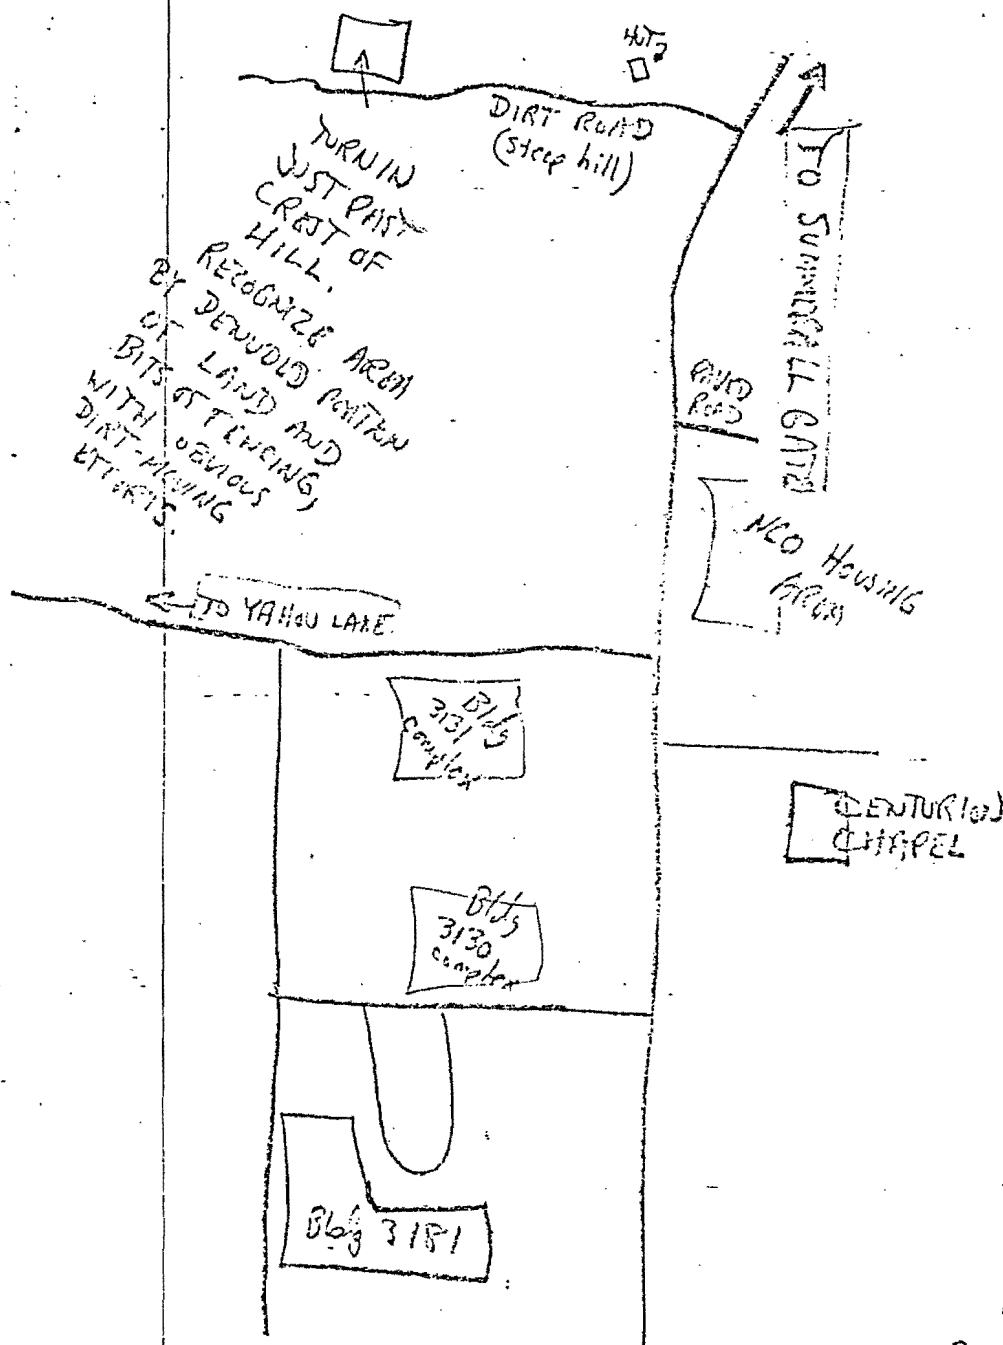 HUT
DIRT ROAD
(steep hill)
TURN IN
JUST PAST
CREST OF
HILL.
RECOGNIZE AREA
BY DENUDED PORTION
OF LAND AND
BITS OF FENCING,
WITH OBVIOUS
DIRT-MOVING
EFFORTS.
TO SUMMERALL GATE
PAVED
ROAD
NCO HOUSING
AREA
TO YAHOU LANE
Bldg
3131
complex
CENTURION
CHAPEL
Bldg
3130
complex
Bldg 3181